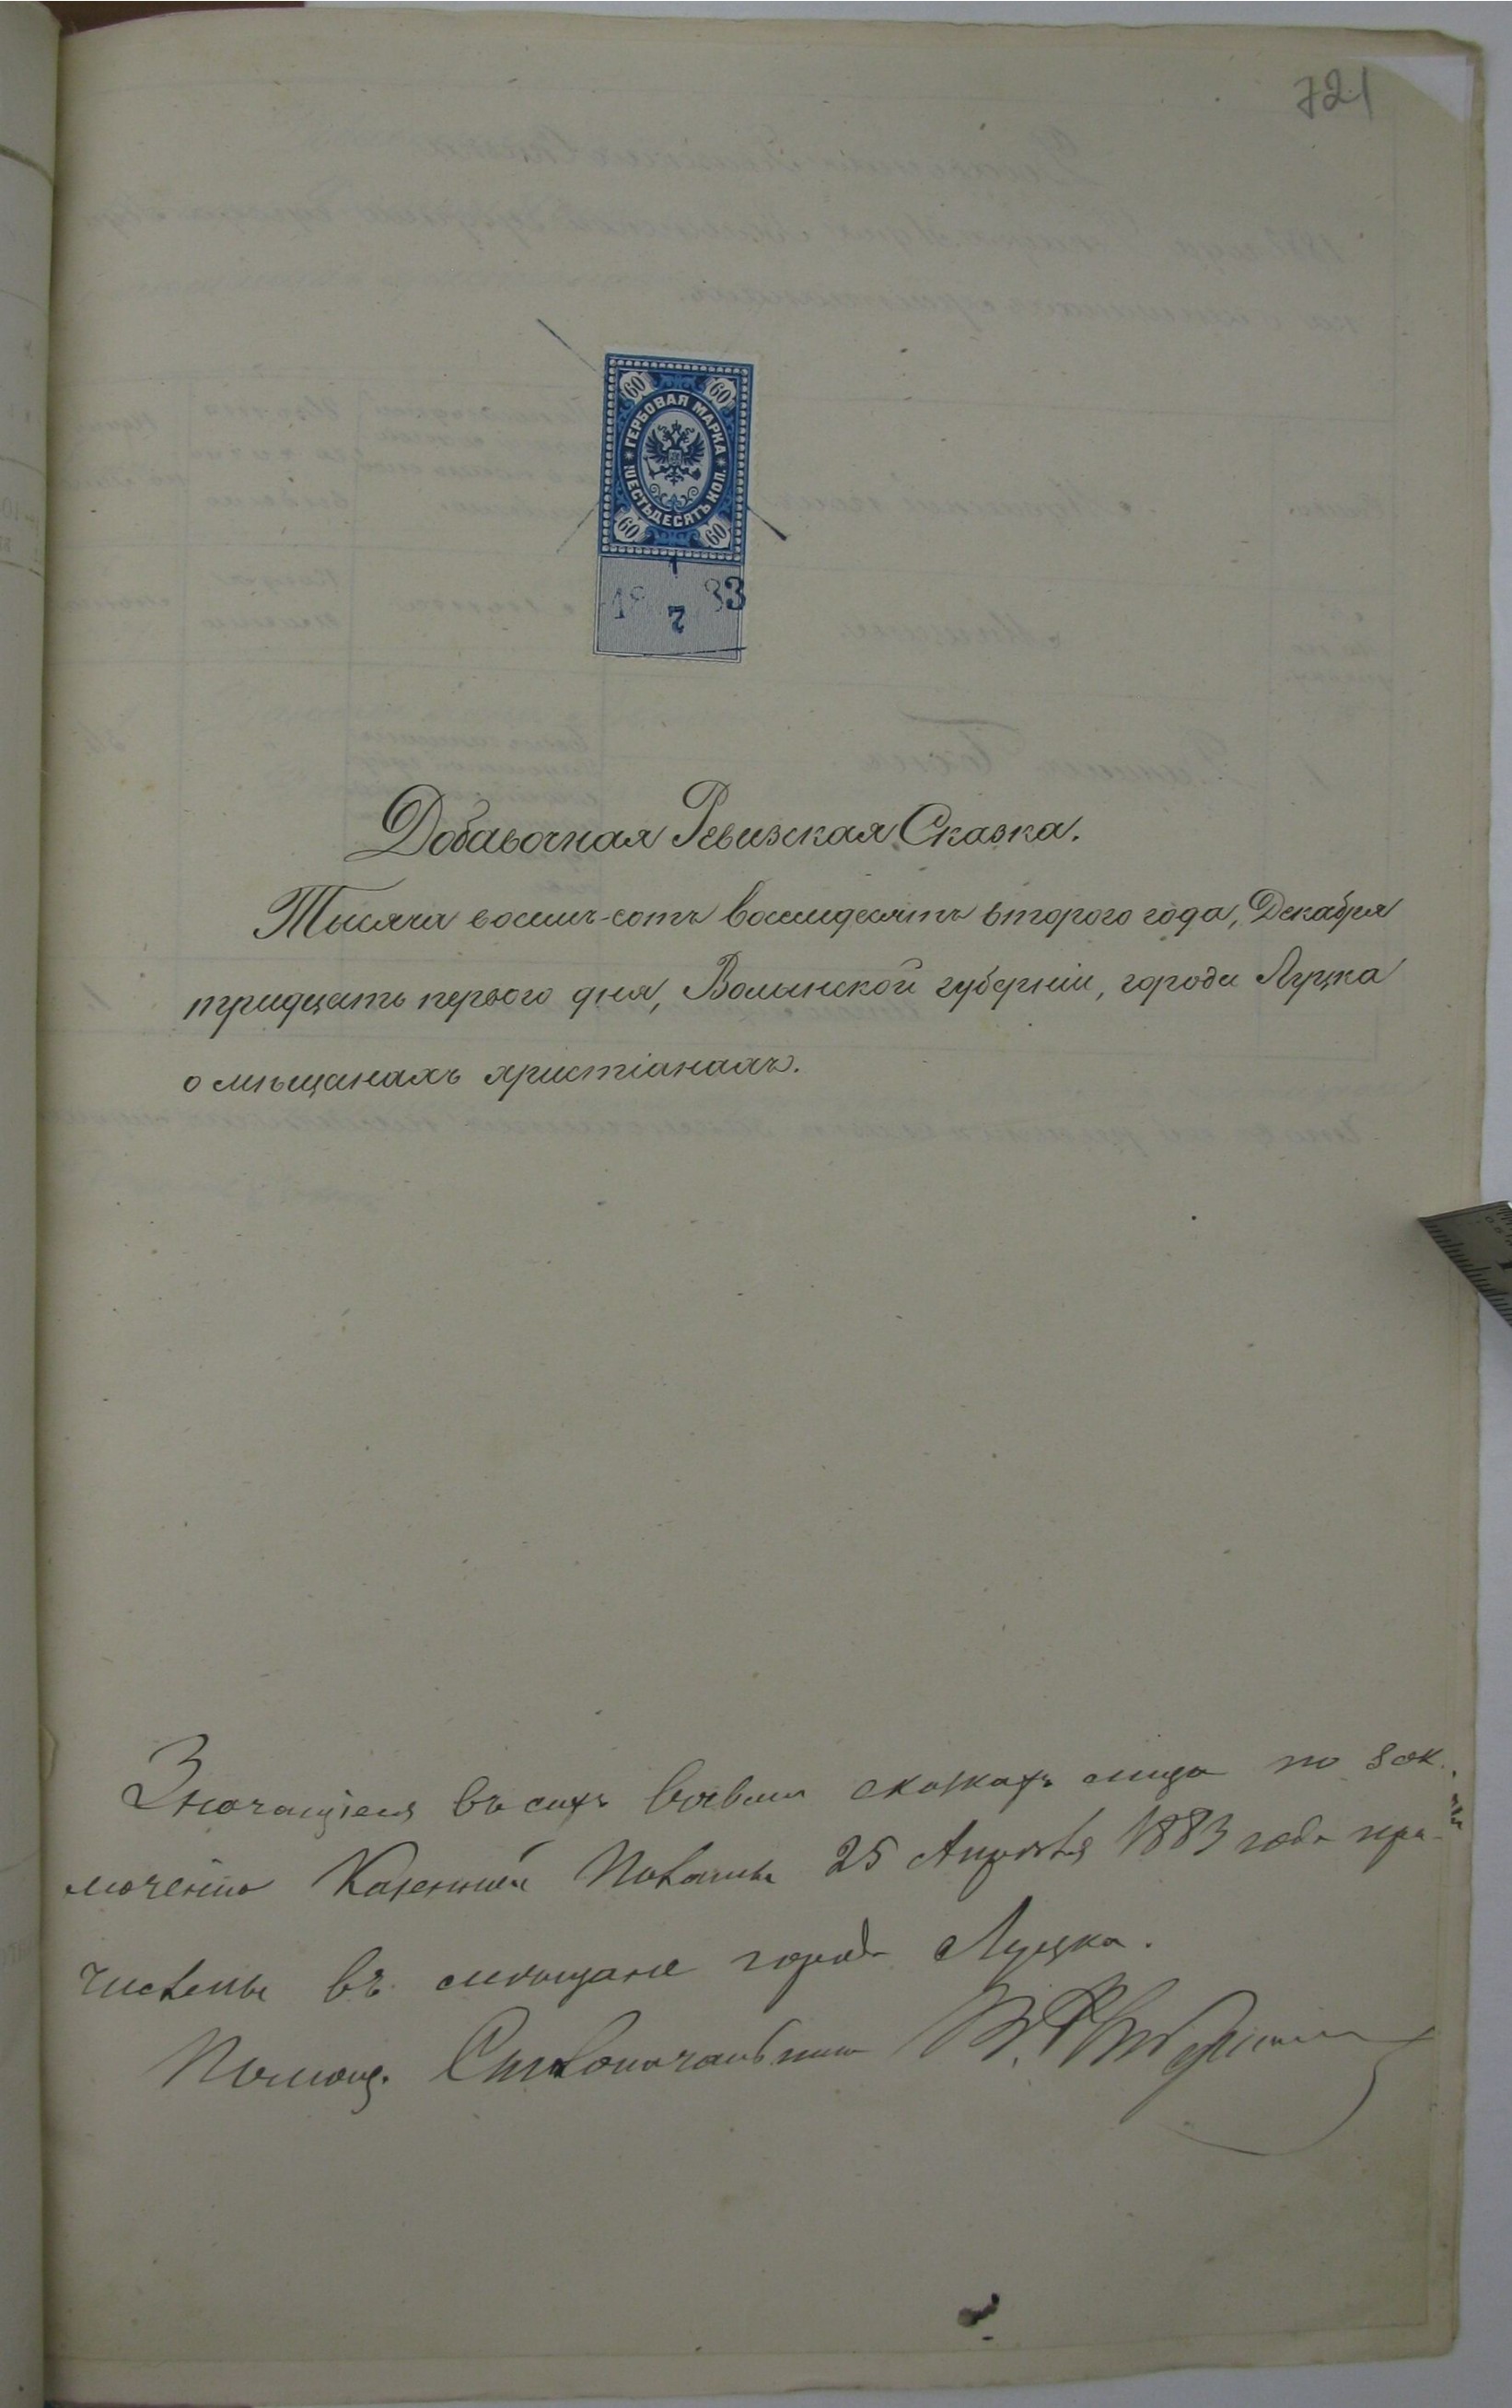 721
60 60
ГЕРБОВАЯ МАРКА
ШЕСТЬДЕСЯТЪ КОП.
60 60
18 83
7
Добавочная Ревизская Сказка.
Тысяча восемь-сотъ восемдесятъ второго года, Декабря
тридцать перваго дня, Волынской губерніи, города Луцка
о мѣщанахъ христіанахъ.
Значащіеся въ сихъ сказкахъ лица по зак-
люченію Казенной Палаты 25 Апрѣля 1883 года при-
числены въ мѣщане города Луцка.
Помощ. Столоначальника